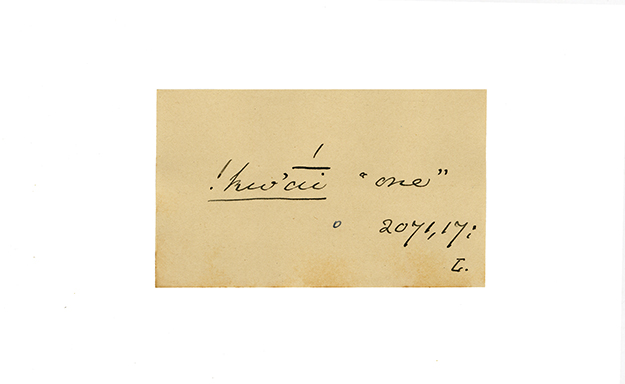 !kw'ai "one"
2071,17:
L.